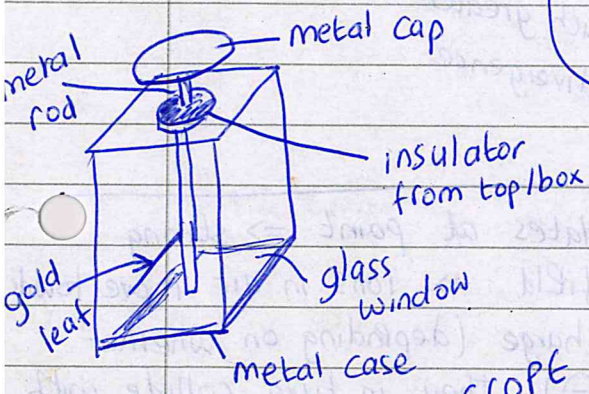 metal cap
metal
rod
insulator
from top/box
gold
leaf
glass
window
metal case